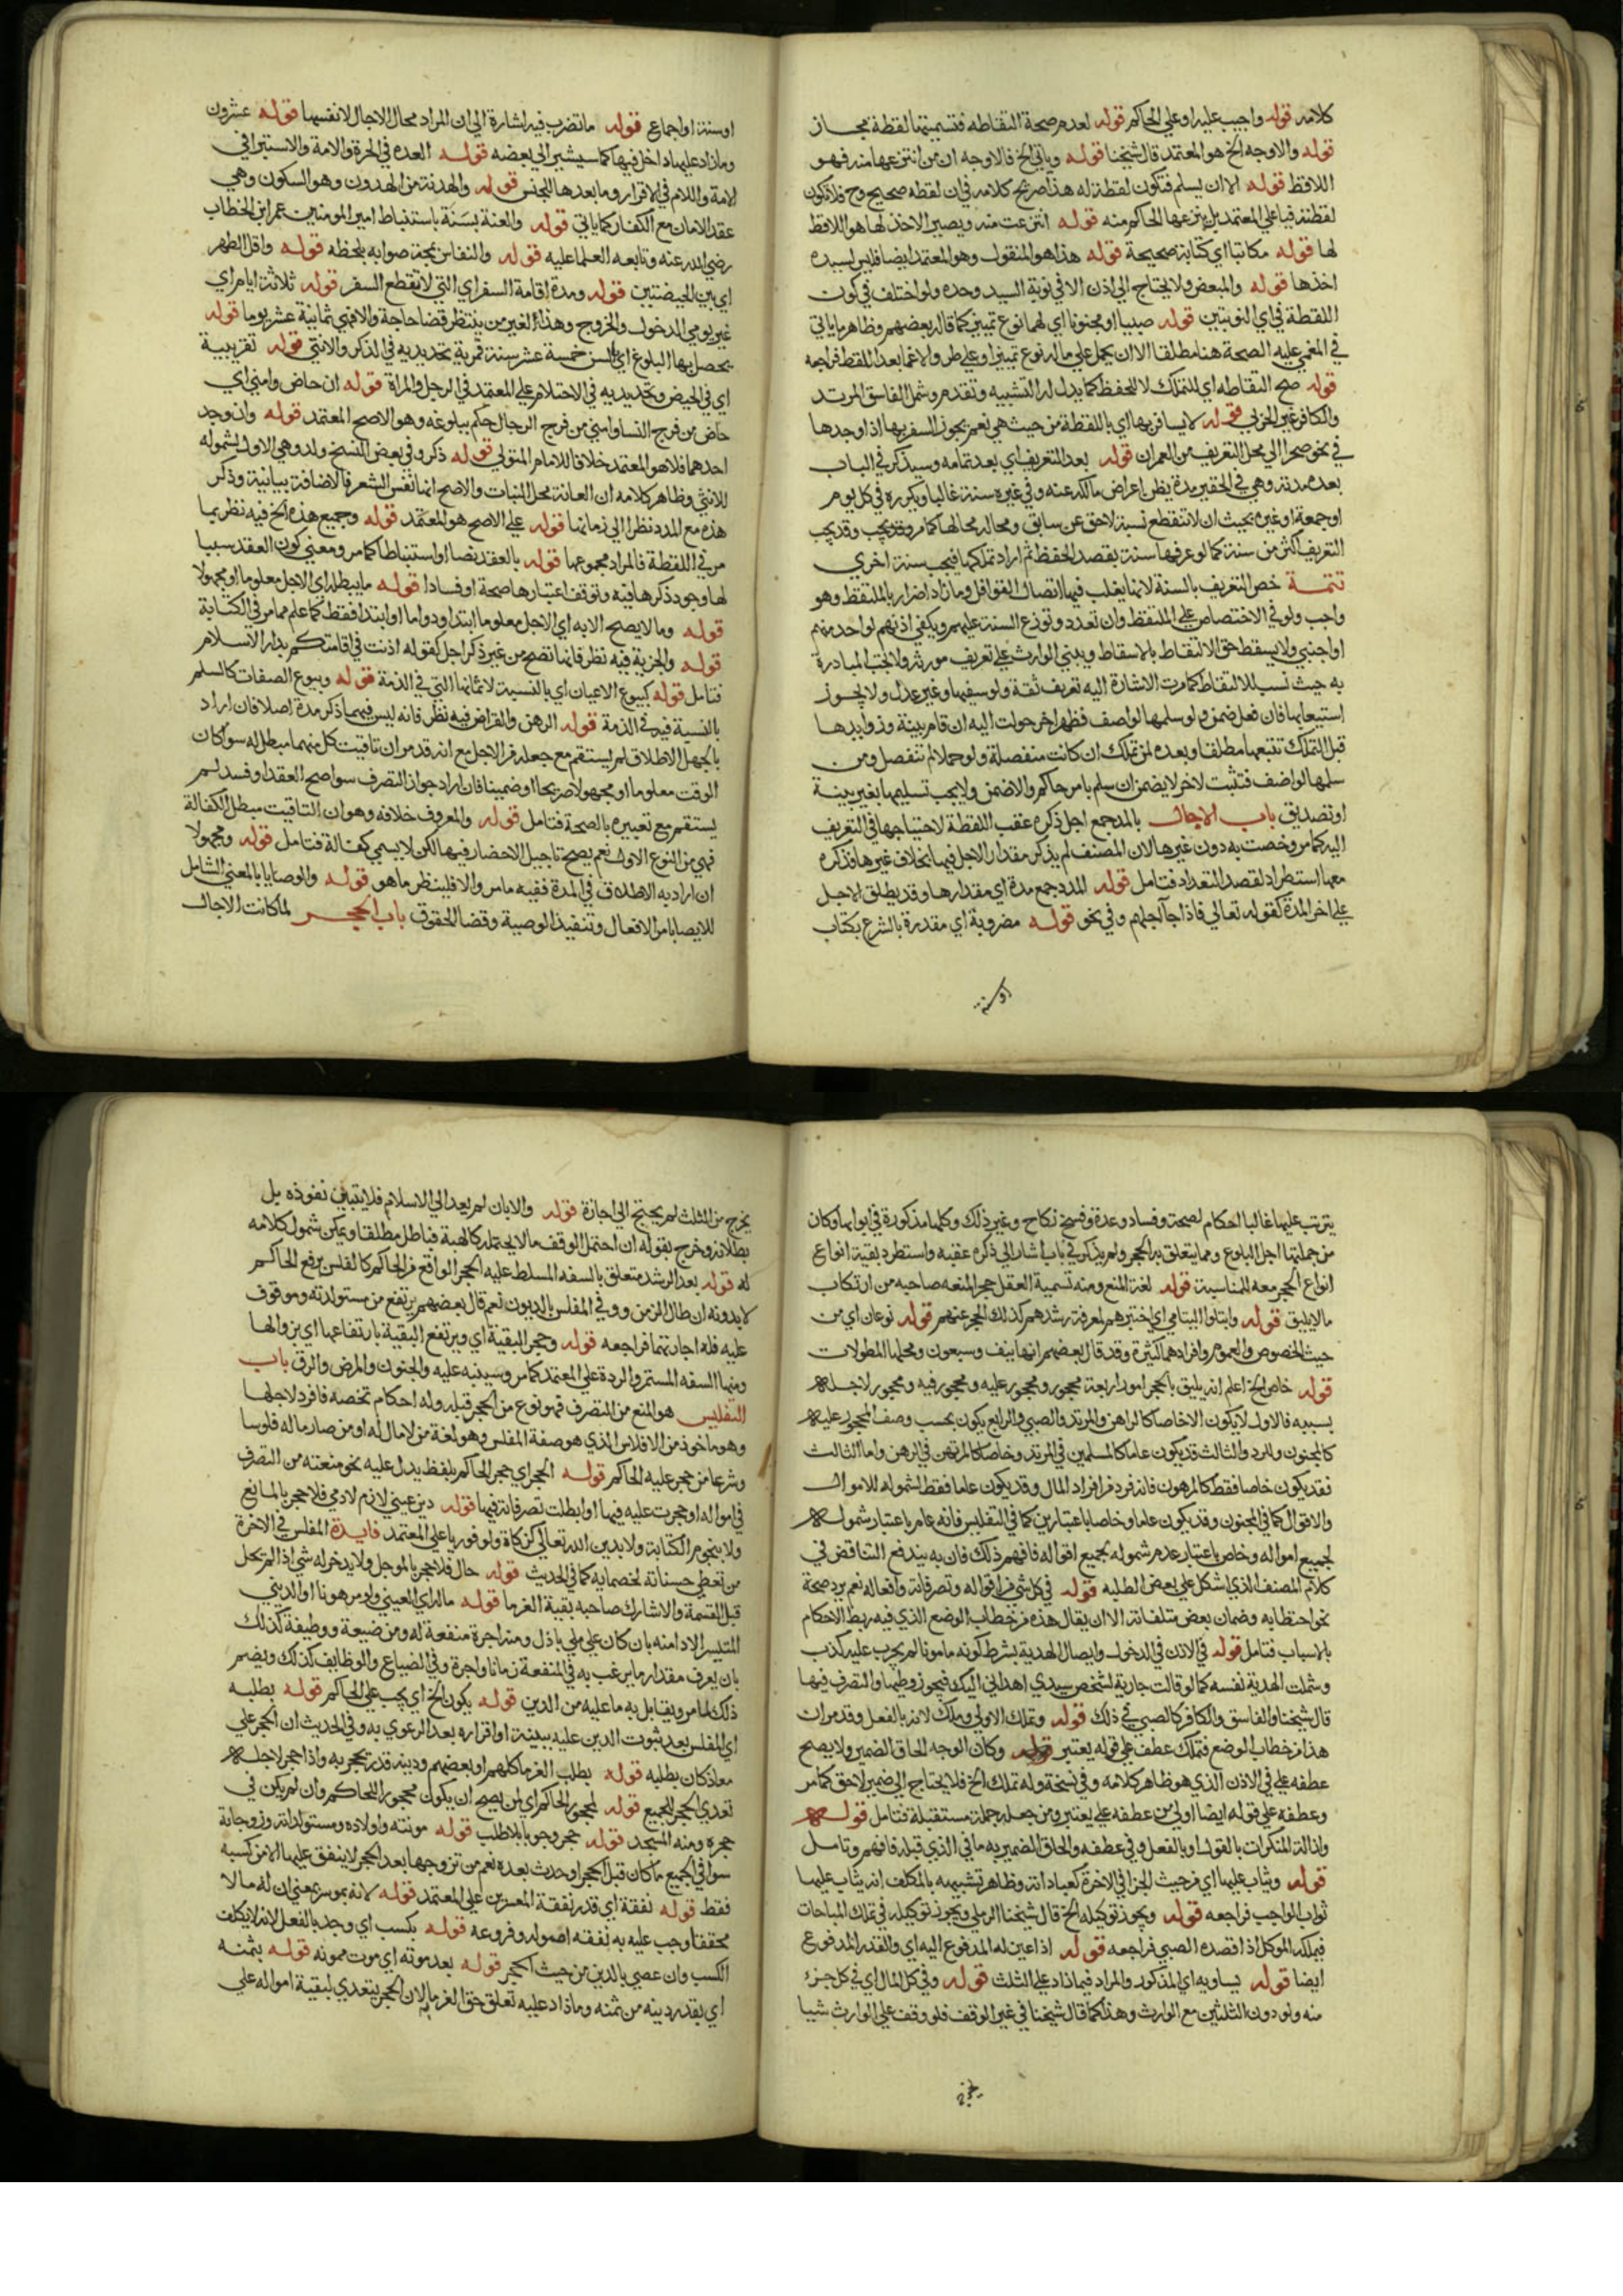 كلامه قوله واجيب عليه او علي الحاكم قوله لعدم صحة التقاطه فتسميتها لقطة مجاز
قوله والاوجه الخ هو المعتمد قال شيخنا قوله وياتي الخ فالاوجه ان من انتزعها منه فهو
اللاقط قوله الا ان يسلم فتكون لقطة له هذا صريح كلامه في ان لقطه صحيح وح فلا تكون
لقطته فيا علي المعتمد بل ينزعها الحاكم منه قوله انتزعت منه ويصير الاخذ لها هو اللاقط
لها قوله مكاتبا اي كتابة صحيحة قوله هذا هو المنقول وهو المعتمد ايضا فليس لسيده
اخذها قوله والمبعض ولا يحتاج الي اذن الا في نوبة السيد وحده ولو اختلف في كون
اللقطة في اي النوبتين قوله صبيا او مجنونا اي لهما نوع تمييز كما قاله بعضهم وظاهر ما ياتي
في المغمي عليه الصحة هنا مطلقا الا ان يحمل علي ما له نوع تمييز او علي طرو الاغما بعد اللقط فراجعه
قوله صح التقاطه اي للتملك لا للحفظ كما يدل له التشبيه وتقدم وشمل الفاسق المرتد
والكافر غير الحربي قوله لا يسافر بها اي باللقطة من حيث هي نعم يجوز السفر بها اذا وجدها
في نحو صحرا الي محل التعريف من العمران قوله بعد التعريف اي بعد تمامه وسيذكر في الباب
بعده مدته وهي في الحقير مدة يظن اعراض مالكه عنه وفي غيره سنة غالبا ويكرره في كل يوم
او جمعة او غيره بحيث ان لا تنقطع نسبة لاحق عن سابق ومحاله محالها كما مر وقد يجب وقد يجب
التعريف اكثر من سنة كما لو عرفها سنة بقصد الحفظ ثم اراد تملكها فيجب سنة اخري
تتمة خص التعريف بالسنة لانها يغلب فيها اتصال القوافل وما زاد اضرار بالملتقط وهو
واجب ولو في الاختصاص علي الملتقط وان تعدد وتوزع السنة عليهم ويكفي اذنهم لواحد منهم
او اجنبي ولا يسقط حق الالتقاط بالاسقاط ويبني الوارث علي تعريف مورثه ولا تجب المبادرة
به حيث نسب للالتقاط كما مرت الاشارة اليه تعريف ثقة ولو سفيها وغير عدل ولا يجوز
استيعابها فان فعل ضمن ولو سلمها لواصف فظهر اخر حولت اليه ان قام ببينة وزوايدها
قبل التملك تتبعها مطلقا وبعده لمن تملك ان كانت منفصلة ولو حملا لم تنفصل ومن
سلمها لواصف فتثبت لاخر لا يضمن ان سلم بامر حاكم والا ضمن ولا يجب تسليمها بغير بينة
او تصديق باب الاجال بالمد جمع اجل ذكره عقب اللقطة لاحتياجها في التعريف
اليه كما مر وخصت به دون غيرها لان المصنف لم يذكر مقدار الاجل فيها بخلاف غيرها فذكره
معها استطراد لقصد التعداد فتامل قوله المدد جمع مدة اي مقدارها وقد يطلق الاجل
علي اخر المدة كقوله تعالي فاذا جا اجلهم وفي نحو قوله مضروبة اي مقدرة بالشرع بكتاب
او سنة
او سنة او اجماع قوله ما تضرب فيه اشارة الي ان المراد محال الاجال لا نفسها قوله عشرون
وما زاد عليها داخل فيها كما سيشير الي بعضه قوله العده في الحرة والامة والاستبرا في
الامة واللام في الاقرار وما بعدها للجنس قوله والهدنة من الهدون وهو السكون وهي
عقد الامان مع الكفار كما ياتي قوله والعنة بسنة باستنباط امير المومنين عمر ابن الخطاب
رضي الله عنه وتابعه العلما عليه قوله والنفاس بمجة صوابه بلحظه قوله واقل الطهر
اي بين الحيضتين قوله ومدة اقامة السفر اي التي لا تقطع السفر قوله ثلاثة ايام اي
غير يومي الدخول والخروج وهذا لغير من ينتظر قضا حاجة والا فهي ثمانية عشر يوما قوله
يحصل بها البلوغ اي بالسن خمسة عشر سنة قمرية تحديديه في الذكر والانثي قوله تقريبية
اي في الحيض وتحديديه في الاحتلام علي المعتمد في الرجل والمراة قوله ان حاض وامني اي
حاض من فرج النسا وامني من فرج الرجال حكم ببلوغه وهو الاصح المعتمد قوله وان وجد
احدهما فلا هو المعتمد خلافا للامام المتولي قوله ذكر وفي بعض النسخ ولد وهي الاولي لشموله
للانثي وظاهر كلامه ان العانة محل النبات والاصح انها نفس الشعر فالاضافة بيانية وذكر
هذه مع المدد نظرا الي زمانها قوله علي الاصح هو المعتمد قوله وجميع هذه الخ فيه نظر بما
مر في اللقطة فالمراد مجموعها قوله بالعقد نصا او استنباطا كما مر ومعني كون العقد سببا
لها وجود ذكرها فيه وتوقف اعتبارها صحة او فسادا قوله ما يبطله اي الاجل معلوما او مجهولا
قوله وما لا يصح الا به اي الاجل معلوما ابتدا ودواما او ابتدا فقط كما علم مما مر في الكتابة
قوله والجزية فيه نظر فانها تصح من غير ذكر اجل كقوله اذنت في اقامتكم بدار الاسلام
فتامل قوله كبيوع الاعيان اي بالنسبة لاثمانها التي في الذمة قوله وبيوع الصفات كالسلم
بالنسبة فيه في الذمة قوله الرهن والقراض فيه نظر فانه ليس فيهما ذكر مدة اصلا فان اراد
بالجهل الاطلاق لم يستقم مع جعله من الاجل مع انه قد مر ان تاقيت كل منهما مبطل له سوا كان
الوقت معلوما او مجهولا صريحا او ضمنيا فان اراد جواز التصرف سوا صح العقد او فسد لم
يستقم مع تعبيره بالصحة فتامل قوله والمعروف خلافه وهو ان التاقيت مبطل الكفالة
فهي من النوع الاول نعم يصح تاجيل الاحضار فيها لكن لا يسمي كفالة فتامل قوله ومجهولا
ان اراد به الاطلاق في المدة ففيه ما مر والا فلينظر ما هو قوله والوصايا بالمعني الشامل
للايصا بامر الاقعال وتنفيذ الوصية وقضا الحقوق باب الحجر لما كانت الاجال
يترتب عليها غالبا احكام لصحة وفساد وعدة وفسخ نكاح وغير ذلك وكلها مذكورة في ابوابها وكان
من جملتها اجل البلوغ ومما يتعلق به الحجر ولم يذكر في باب اشار الي ذكره عقبه واستطرد بقية انواع
انواع الحجر معه للمناسبة قوله لغة المنع ومنه تسمية العقل حجرا لمنعه صاحبه من ارتكاب
ما لا يليق قوله وابتلوا اليتامي اي اختبرهم لمعرفة رشدهم كذلك الحجر عنهم قوله نوعان اي من
حيث الخصوص والعموم وافرادهما كثيرة وقد قال بعضهم انها نيف وسبعون ومحلها المطولات
قوله خاص الخ اعلم انه يليق بالحجر امور اربعة محجور ومحجور عليه ومحجور فيه ومحجور لاجله
بسببه فالاول لا يكون الا خاصا كالراهن والمرتد والصبي والرابع يكون بحسب وصف المحجور عليه
كالجنون والرد والثالث قد يكون عاما كالمسلمين في المرتد وخاصا كالمرتهن في الرهن واما الثالث
فقد يكون خاصا فقط كالمرهون فانه فرد من افراد المال وقد يكون عاما فقط لشموله للاموال
والاقوال كما في المجنون وقد يكون عاما وخاصا باعتبارين كما في التفليس فانه عام باعتبار شموله
لجميع امواله وخاص باعتبار عدم شموله لجميع اقواله فافهم ذلك فان به يندفع التناقض في
كلام المصنف الذي اشكل علي بعض الطلبه قوله في كل شي من اقواله وتصرفاته وافعاله نعم يرد صحة
نحو احتطابه وضمان بعض متلفاته الا ان يقال هذه من خطاب الوضع الذي فيه ربط الاحكام
بالاسباب فتامل قوله في الاذن في الدخول وايصال الهدية بشرط كونه مامونا لم يجرب عليه كذب
وشملت الهدية نفسه كما لو قالت جارية لشخص سيدي اهداني اليك فيجوز وطيها والتصرف فيها
قال شيخنا والفاسق والكافر كالصبي في ذلك قوله وتملك الاولي وملك لانه بالفعل وقد مر ان
هذا من خطاب الوضع فتملك عطف علي قوله يعتبر قوله وكان الوجه الحاق الضمير ولا يصح
عطفه علي في الاذن الذي هو ظاهر كلامه وفي نسخة وله تملك الخ فلا يحتاج الي ضمير لاحق كما مر
وعطفه علي قوله ايضا اولي من عطفه علي يعتبر ومن جعله جملة مستقبلة فتامل قوله
وازالة المنكرات بالقول او بالفعل وفي عطفه والحاق الضمير به ما في الذي قبله فافهم وتامل
قوله ويثاب عليها اي من حيث الجزا في الاخرة كعباداته وظاهر تشبيهه بالمكلف انه يثاب عليها
ثواب الواجب فراجعه قوله ويجوز توكيله الخ قال شيخنا الرملي ويجوز توكيله في تملك المباحات
فيملكه الموكل اذا قصده الصبي فراجعه قوله اذا عين له المدفوع اليه اي والقدر المدفوع
ايضا قوله يساويه اي المذكور والمراد فيما زاد علي الثلث قوله وفي كل المال اي في كل جزء
منه ولو دون الثلثين مع الوارث وهذا كما قال شيخنا في غير الوقف فلو وقف علي الوارث شيا
يخرج
يخرج من الثلث لم يحتج الي اجازة قوله والا بان لم يعد الي الاسلام فلا يتبين نفوذه بل
بطلانه وخرج بقوله ان احتمل الوقف ما لا يحتمله كالهبة فباطل مطلقا ويمكن شمول كلامه
له قوله بعد الرشد متعلق بالسفه المسلط عليه الحجر الواقع من الحاكم كالفلس برفع الحاكم
لا بدونه ان طال الزمن ووفي المفلس بالديون نعم قال بعضهم يرتفع من مستولدته وموقوف
عليه فله اجارتها فراجعه قوله وحجر البقية اي ويرتفع البقية بارتفاعها اي بزوالها
ومنها السفه المستمر والردة علي المعتمد كما مر وسينبه عليه والجنون والمرض والرق باب
التفليس هو المنع من التصرف فهو نوع من الحجر قبله وله احكام تخصه فافرد لاجلها
وهو ماخوذ من الافلاس الذي هو صفة المفلس وهو لغة من لا مال له او من صار ماله فلوسا
وشرعا من حجر عليه الحاكم قوله الحجر اي حجر الحاكم بلفظ يدل عليه نحو منعته من التصرف
في امواله او حجرت عليه فيها او ابطلت تصرفاته فيها قوله دين عيني لازم لادمي فلا حجر بالمانع
ولا بنجوم الكتابة ولا بدين الله تعالي كزكاة ولو فوريا علي المعتمد فايدة المفلس في الاخرة
من تعطي حسناته لخصمايه كما في الحديث قوله حال فلا حجر بالموجل ولا يدخر له شي اذا لم يحل
قبل القسمة والا شارك صاحبه بقية الغرما قوله ماله اي العيني ولو مرهونا او الديني
المتيسر الادا منه بان كان علي ملي باذل ومنه اجرة منفعة له ومن ضيعة ووظيفة كذلك
بان يعرف مقدار ما يرغب به في المنفعة زمانا واجرة وفي الضياع والوظايف كذلك ويضم
ذلك لما مر ويقابل به ما عليه من الدين قوله يكون الخ اي يجب علي الحاكم قوله بطلبه
اي المفلس بعد ثبوت الدين عليه ببينة او اقراره بعد الدعوي به وفي الحديث ان الحجر علي
معاذ كان بطلبه قوله بطلب الغرما كلهم او بعضهم ودينه قدر يحجر به واذا حجر لاجله
تعدي الحجر للجميع قوله لمحجور الحاكم اي لمن يصح ان يكون محجورا للحاكم وان لم يكن في
حجره ومنه المسجد قوله حجر وجوبا بلا طلب قوله مونته واولاده ومستولداته وزوجاته
سوا في الجميع ما كان قبل الحجر او حدث بعده نعم من تزوجها بعد الحجر لا ينفق عليها الا من كسبه
فقط قوله نفقة اي قدر نفقة المعسرين علي المعتمد قوله لانه موسر بمعني ان له مالا
محققا وجب عليه به نفقه اصوله وفروعه قوله بكسب اي وجد بالفعل لانه لا يكلف
الكسب وان عصي بالدين من حيث الحجر قوله بعد موته اي موت ممونه قوله بثمنه
اي بقدر دينه من ثمنه وما زاد عليه تعلق حق الغرما به لان الحجر يتعدي لبقية امواله علي